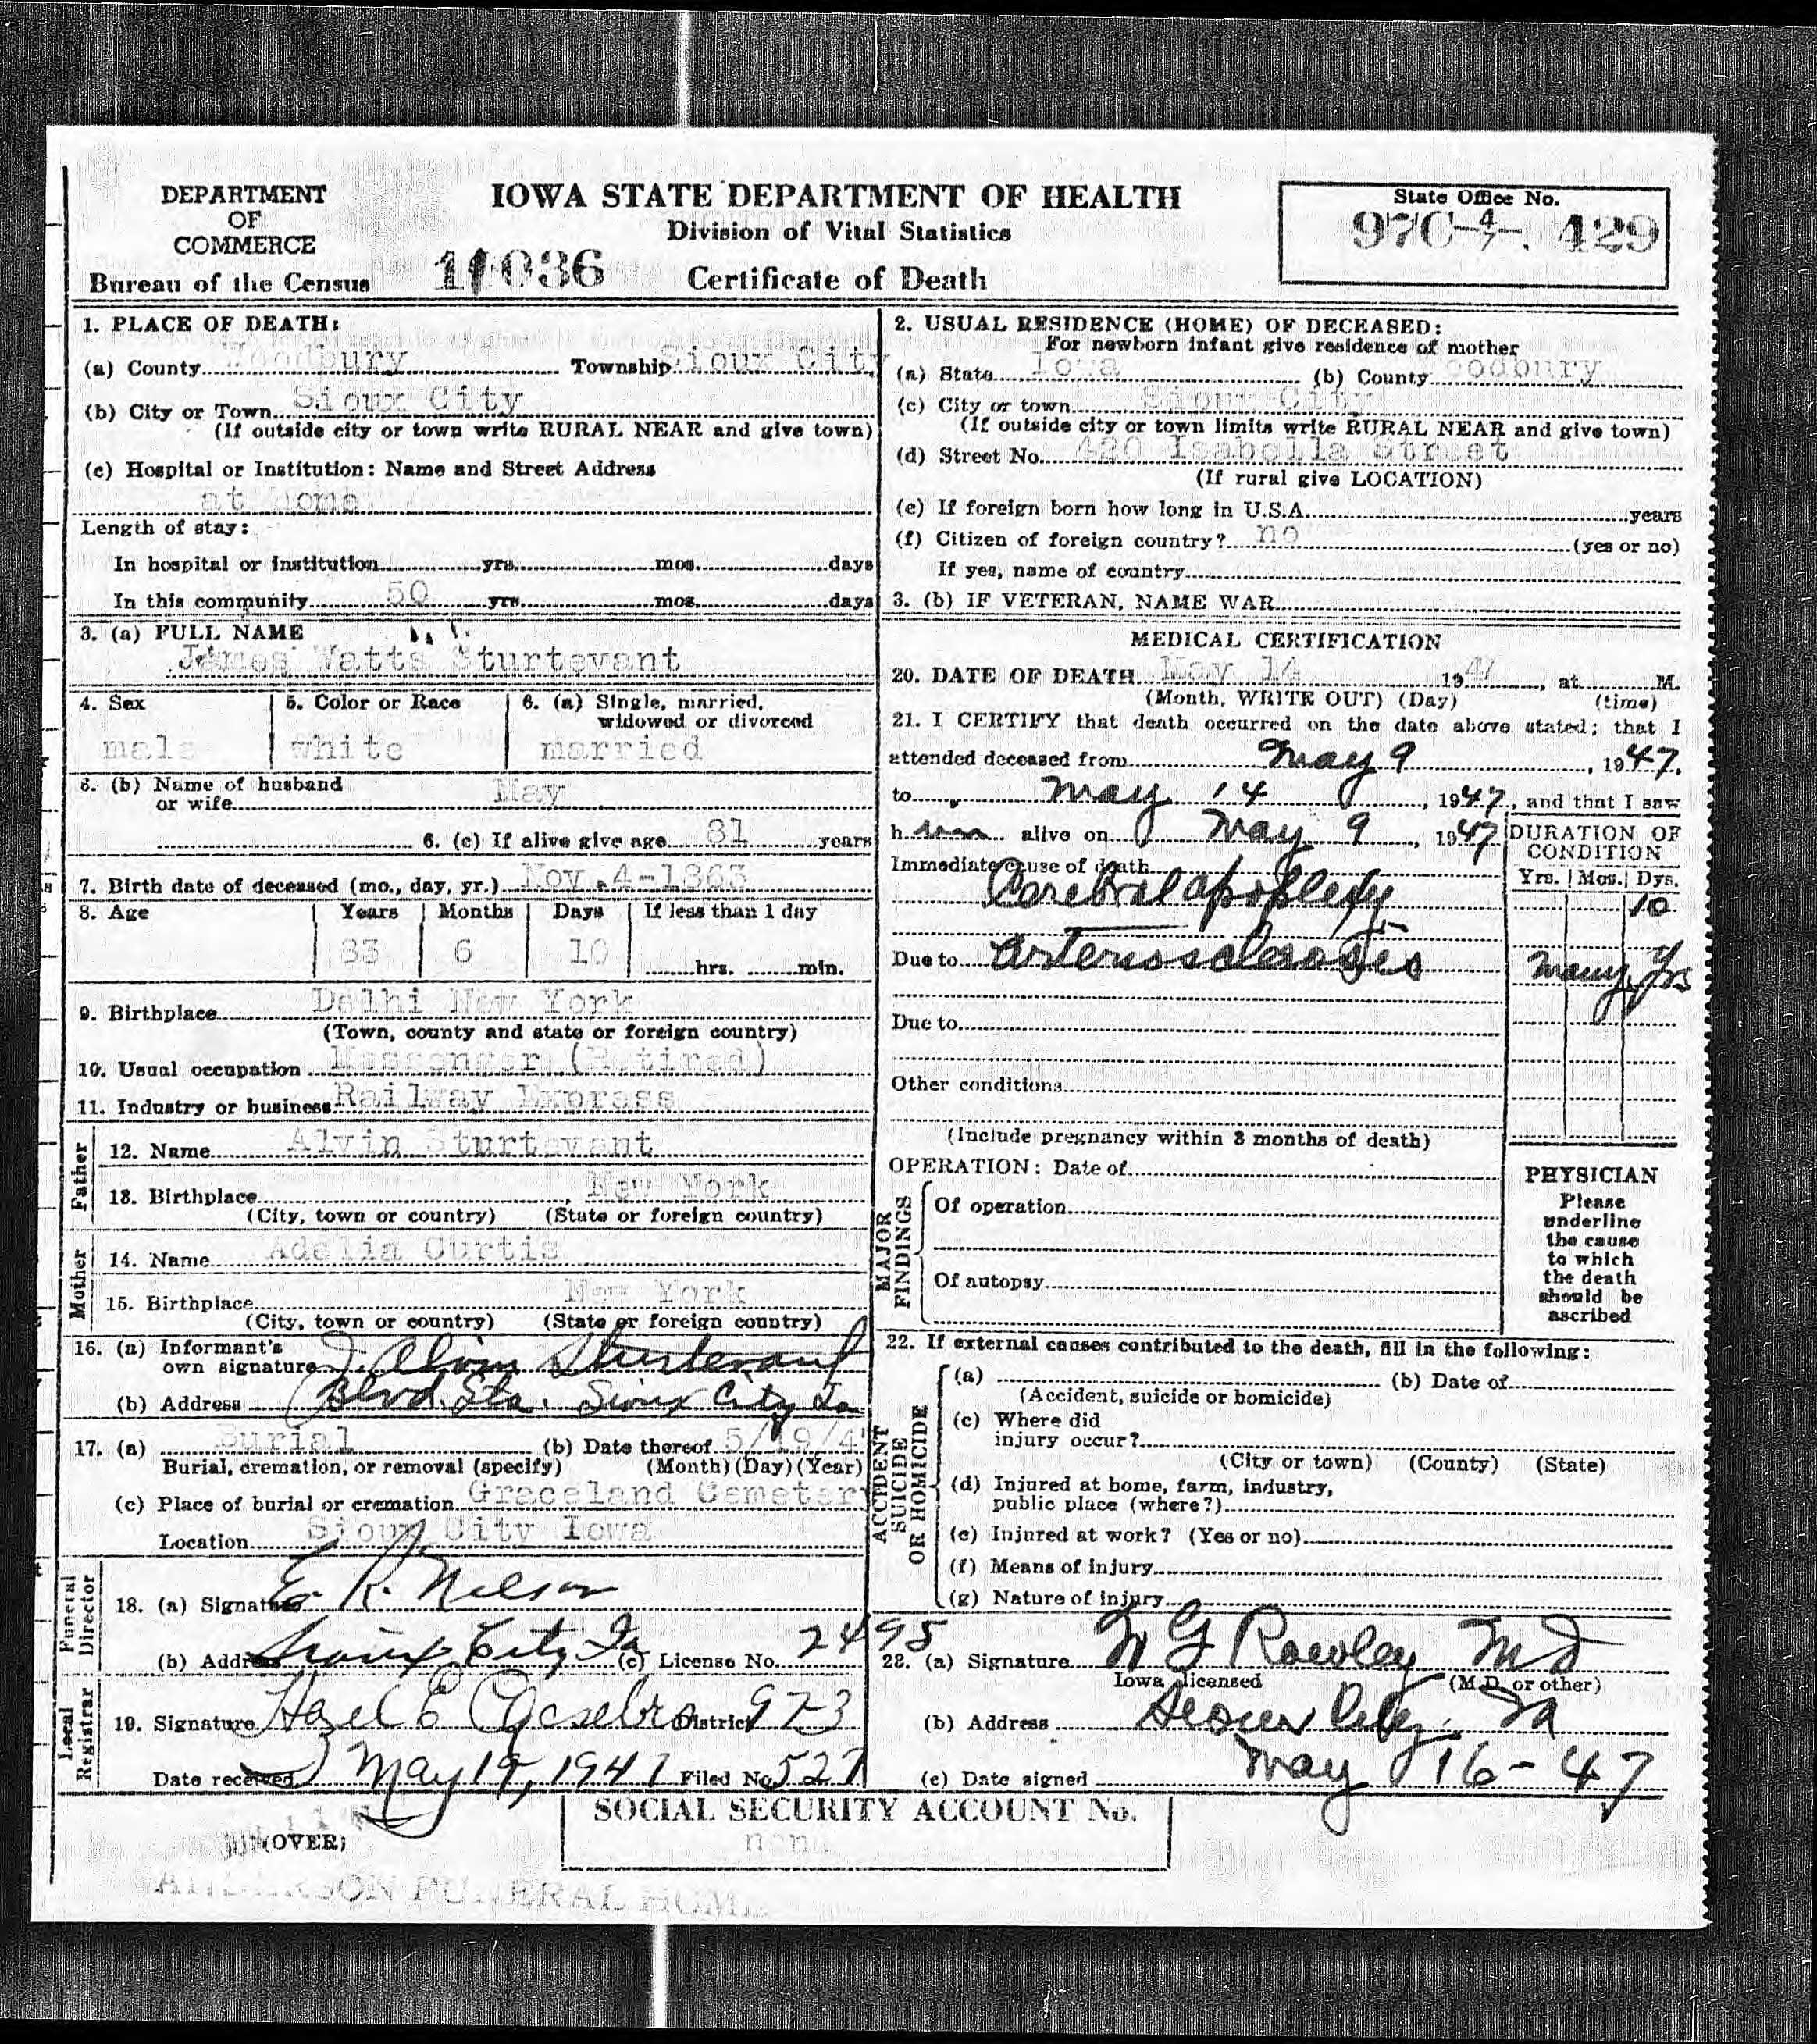 DEPARTMENT
OF
COMMERCE
Bureau of the Census
11036
IOWA STATE DEPARTMENT OF HEALTH
Division of Vital Statistics
Certificate of Death
State Office No.
97C-4/7-. 429
1. PLACE OF DEATH:
(a) County Woodbury Township Sioux City
(b) City or Town Sioux City
(If outside city or town write RURAL NEAR and give town)
(c) Hospital or Institution: Name and Street Address
at home
Length of stay:
In hospital or institution yrs. mos. days
In this community 50 yrs. mos. days
3. (a) FULL NAME
James Watts Sturtevant
4. Sex
male
5. Color or Race
white
6. (a) Single, married,
widowed or divorced
married
6. (b) Name of husband
or wife May
6. (c) If alive give age 81 years
7. Birth date of deceased (mo., day, yr.) Nov. 4-1863
8. Age Years Months Days If less than 1 day
83 6 10 hrs. min.
9. Birthplace Delhi New York
(Town, county and state or foreign country)
10. Usual occupation Messenger (Retired)
11. Industry or business Railway Express
Father
12. Name Alvin Sturtevant
13. Birthplace New York
(City, town or country) (State or foreign country)
Mother
14. Name Adelia Curtis
15. Birthplace New York
(City, town or country) (State or foreign country)
16. (a) Informant's
own signature J. Alvin Sturtevant
(b) Address Blvd. Sta. Sioux City Ia
17. (a) Burial (b) Date thereof 5/19/4
Burial, cremation, or removal (specify) (Month) (Day) (Year)
(c) Place of burial or cremation Graceland Cemetery
Location Sioux City Iowa
Funeral
Director
18. (a) Signature E. R. Nelson
(b) Address Sioux City Ia (c) License No. 2495
Local
Registrar
19. Signature Hazel E District 973
Date received May 19, 1947 Filed No. 527
2. USUAL RESIDENCE (HOME) OF DECEASED:
For newborn infant give residence of mother
(a) State Iowa (b) County oodbury
(c) City or town Sioux City
(If outside city or town limits write RURAL NEAR and give town)
(d) Street No. 420 Isabella Street
(If rural give LOCATION)
(e) If foreign born how long in U.S.A. years
(f) Citizen of foreign country? no (yes or no)
If yes, name of country
3. (b) IF VETERAN, NAME WAR
MEDICAL CERTIFICATION
20. DATE OF DEATH May 14 1947, at M.
(Month, WRITE OUT) (Day) (time)
21. I CERTIFY that death occurred on the date above stated; that I
attended deceased from May 9, 1947,
to May 14, 1947, and that I saw
h im alive on May 9, 1947
DURATION OF
CONDITION
Yrs. Mos. Dys.
Immediate cause of death
Cerebral apoplexy 10
Due to arteriosclerosis many yrs
Due to
Other conditions
(Include pregnancy within 3 months of death)
OPERATION: Date of
MAJOR
FINDINGS
Of operation
Of autopsy
PHYSICIAN
Please
underline
the cause
to which
the death
should be
ascribed
22. If external causes contributed to the death, fill in the following:
ACCIDENT
SUICIDE
OR HOMICIDE
(a) (b) Date of
(Accident, suicide or homicide)
(c) Where did
injury occur?
(City or town) (County) (State)
(d) Injured at home, farm, industry,
public place (where?)
(e) Injured at work? (Yes or no)
(f) Means of injury
(g) Nature of injury
22. (a) Signature W G Rowley MD
Iowa licensed (M.D. or other)
(b) Address Sioux City, Ia
(c) Date signed May 16-47
SOCIAL SECURITY ACCOUNT No.
none
JUN 11
(OVER)
ANDERSON FUNERAL HOME